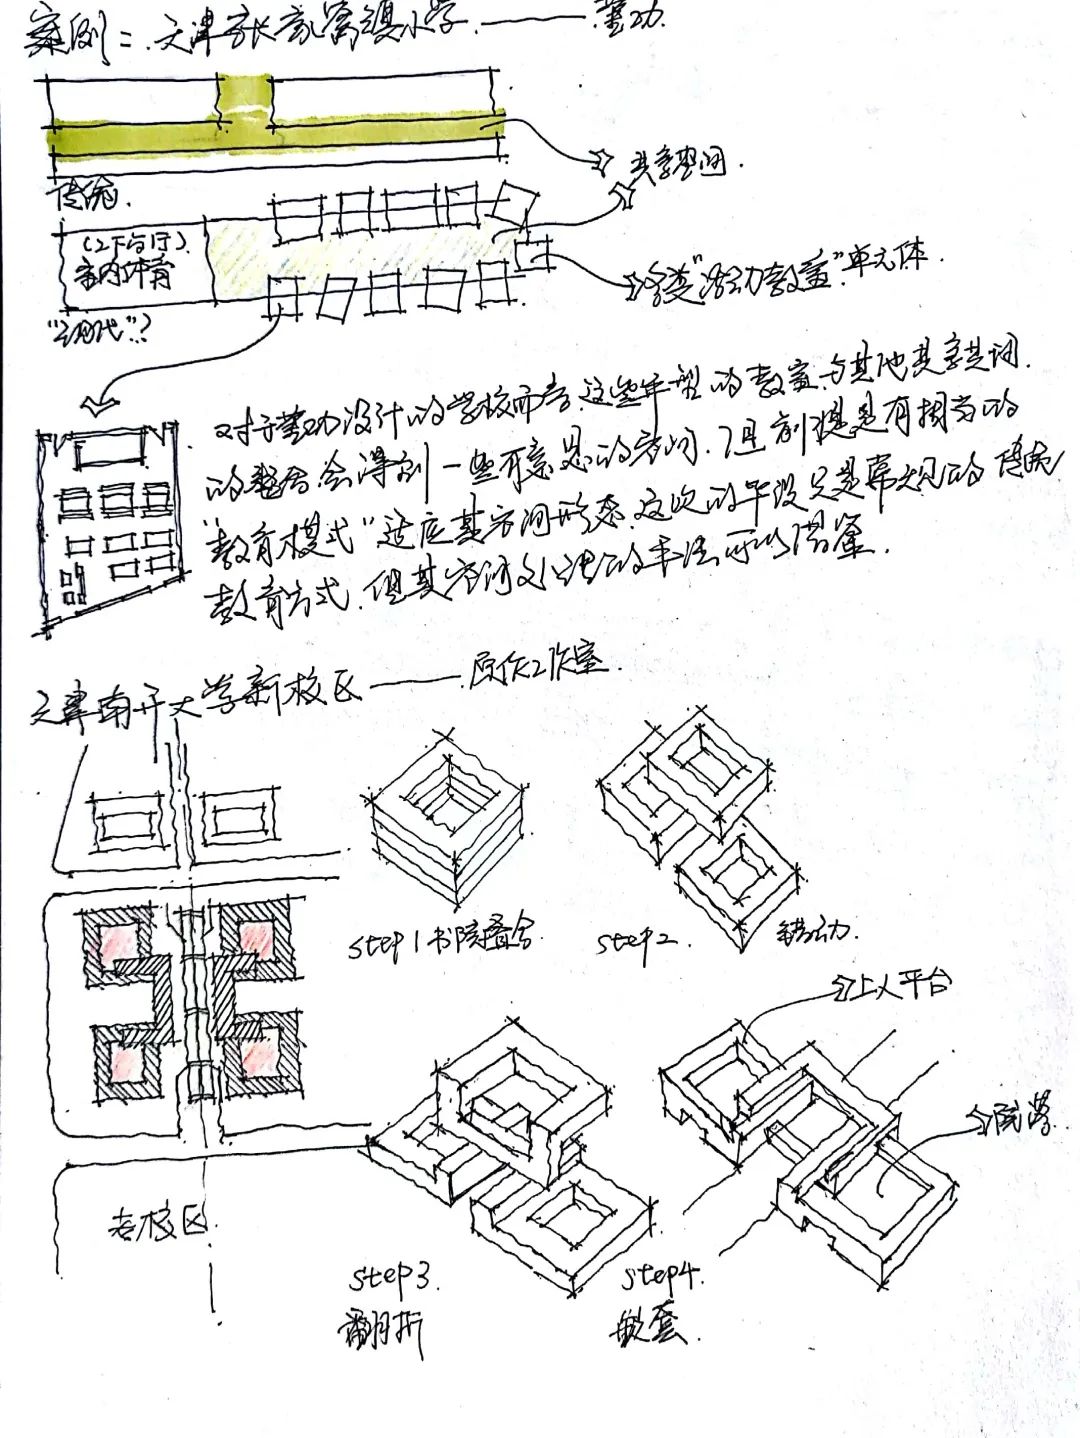 案例：天津张家窝镇小学 —— 董功
共享空间.
传统.
(2下台厅)
室内体育
多变"活动教室"单元体.
"现代"?
对于董功设计的学校而言,这些年型的教室与其他共享空间
的整合会得到一些有意思的空间.但前提是有相当的
"教育模式"适应其空间形态.这次的 只是常规的传统
教育方式.但其空间 的手法可以借鉴.
天津南开大学新校区 —— 原作工作室.
step1 书院叠合.
step2.
错动.
上人平台
院落.
老校区.
step3.
翻折
step4.
嵌套.